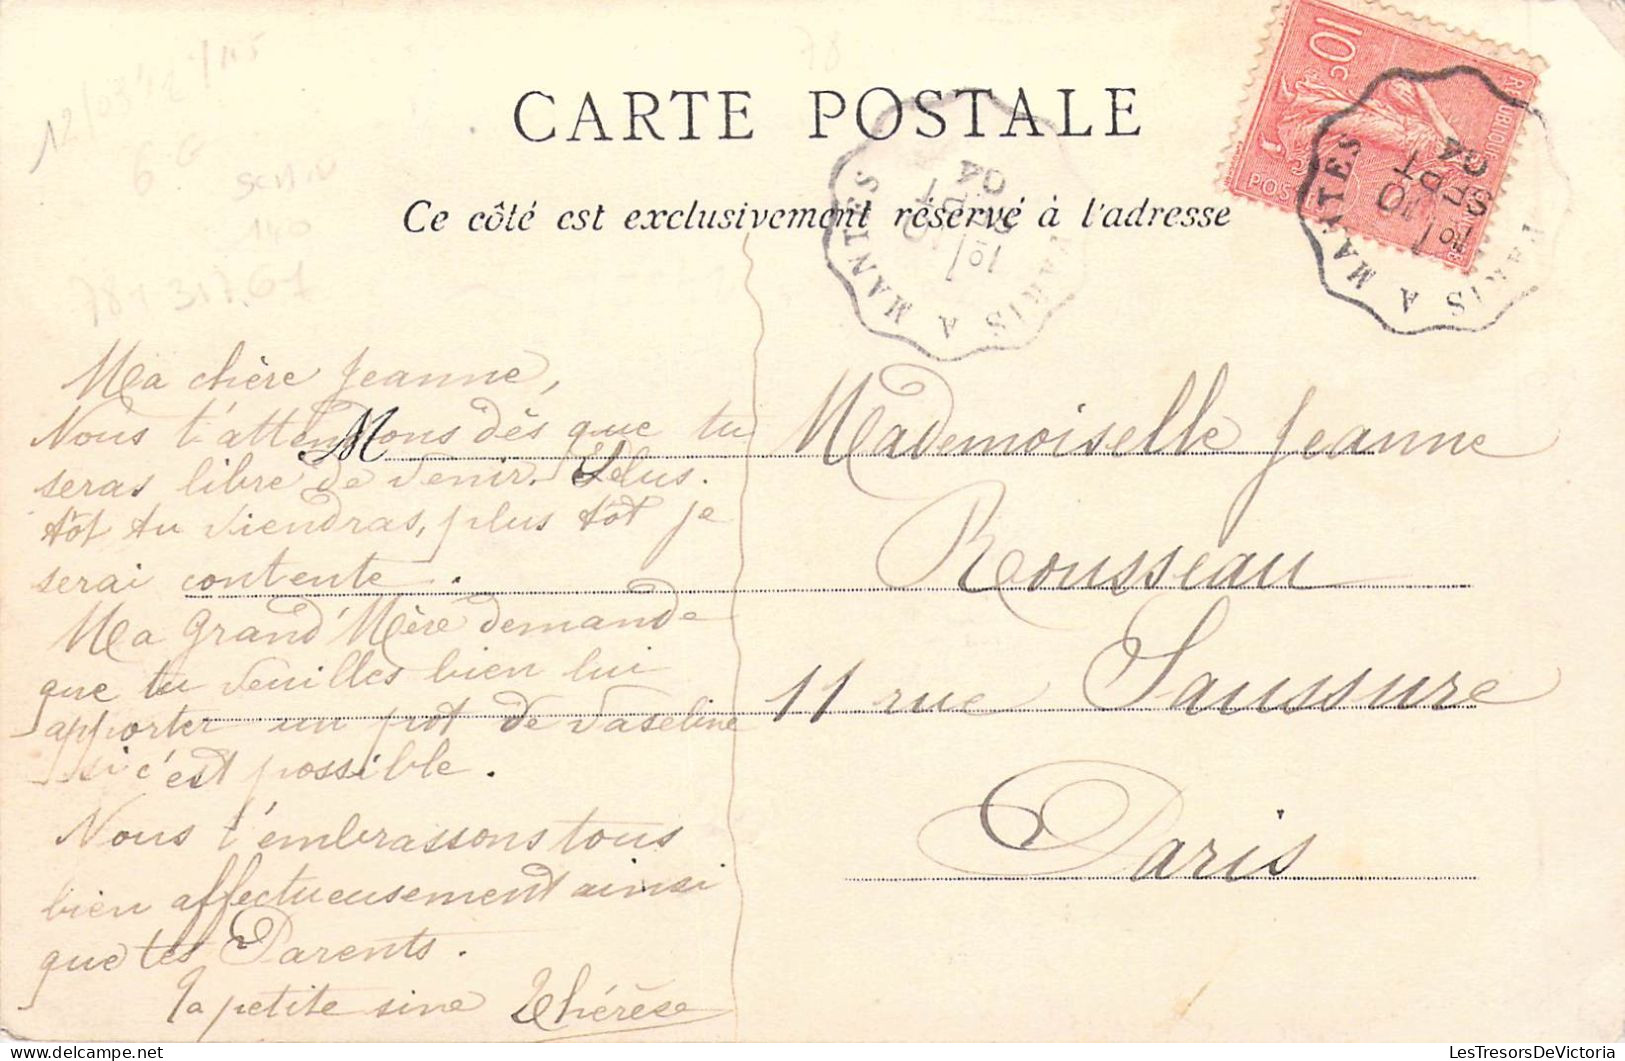 CARTE POSTALE
Ce côté est exclusivement réservé à l'adresse
10c
POST
PARIS A MANTES
10
SEPT
04
PARIS A MANTES
10
04
78
140
Ma chère Jeanne,
Nous t'attendons dès que tu
seras libre de venir. Plus.
tôt tu viendras, plus tôt je
serai contente.
Ma Grand' Mère demande
que tu veuilles bien lui
apporter un pot de vaseline
si c'est possible.
Nous t'embrassons tous
bien affectueusement ainsi
que tes Parents.
Ta petite Thérèse
M
Mademoiselle Jeanne
Rousseau
11 rue Saussure
Paris
LesTresorsDeVictoria